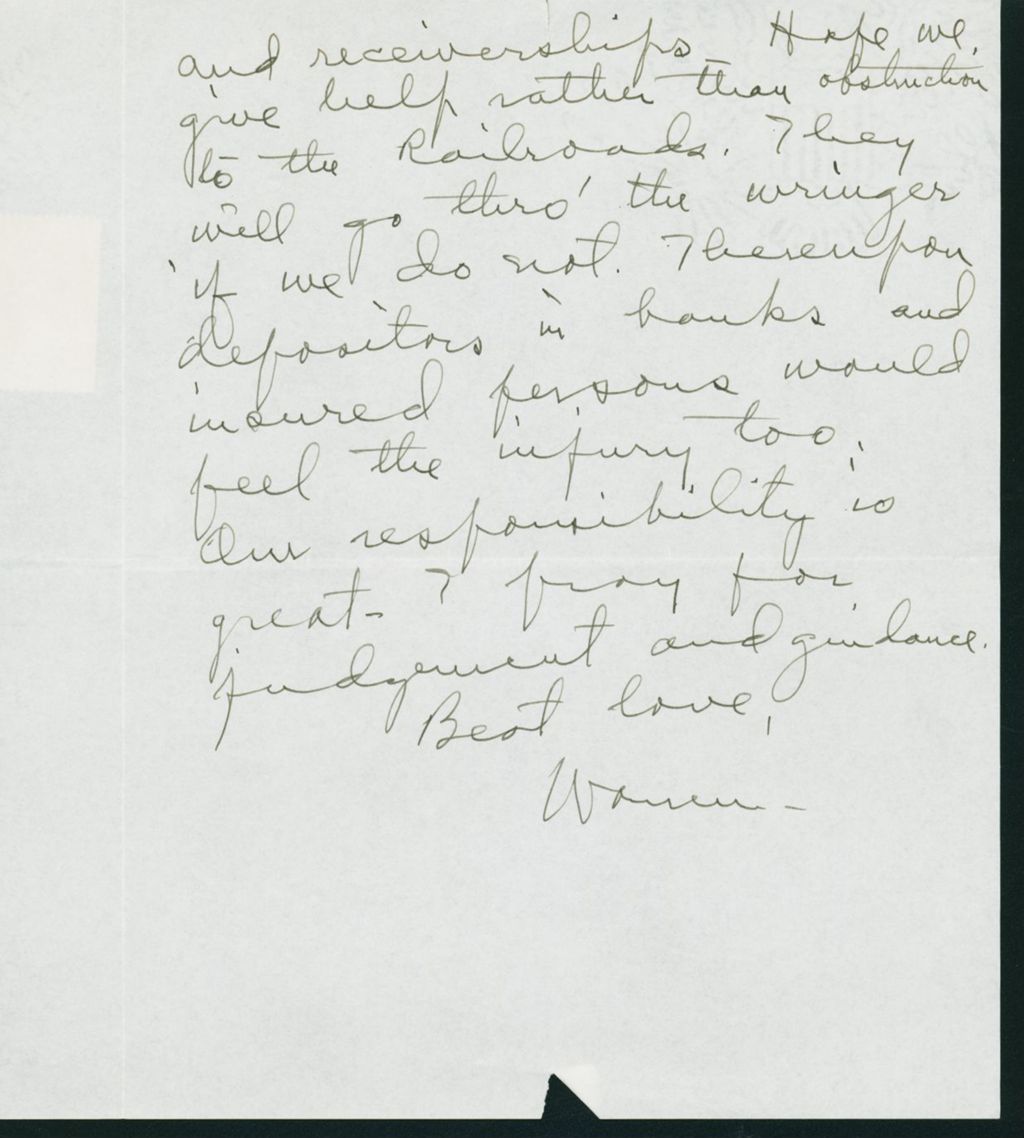 and receiverships – Hope we,
give help rather than obstruction
to the Railroads. They
will go thro' the wringer
if we do not. Thereupon
depositors in banks and
insured persons would
feel the injury too.
Our responsibility is
great – I pray for
judgement and guidance.
Best love,
Warren –